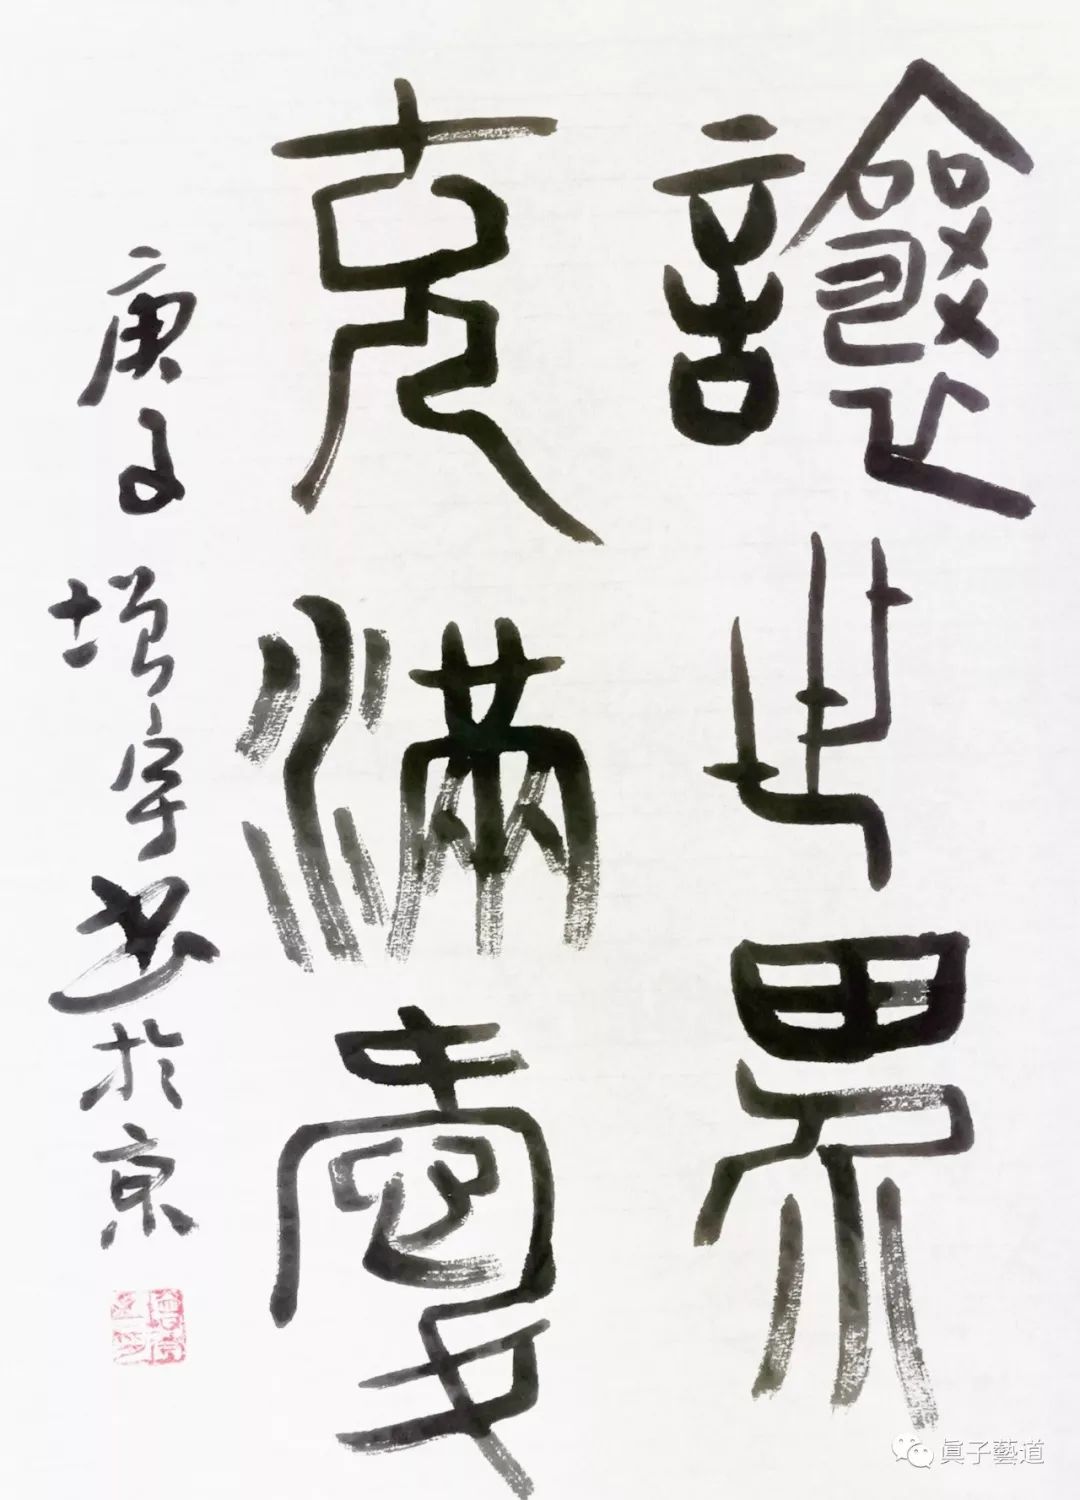 讓世界
充滿愛
庚子增宇書於京
眞子藝道